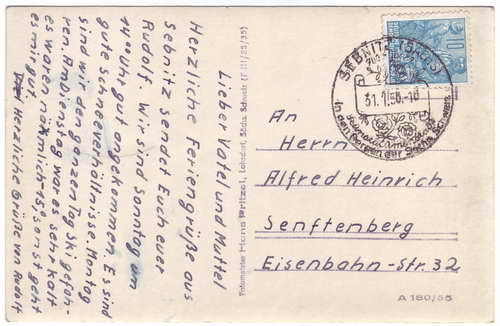 Lieber Vatel und Muttel
Herzliche Feriengrüße aus
Sebnitz sendet Euch euer
Rudolf. Wir sind Sonntag um
14⁰⁰ Uhr gut angekommen. Es sind
gute Schneeverhältnisse. Montag
sind wir den ganzen Tag Ski gefah-
ren. Am Dienstag war es sehr kalt
es waren nähmlich -15; sonst geht
es mir gut.
Herzliche Grüße von Rudolf
Fotomeister Hans Pritzel, Lohsdorf, Sächs. Schweiz (F III/25/35)
10
SEBNITZ (SACHS)
31.1.56.-18
in den Bergen der Sächs. Schweiz
An
Herrn
Alfred Heinrich
Senftenberg
Eisenbahn-Str. 32
A 180/55